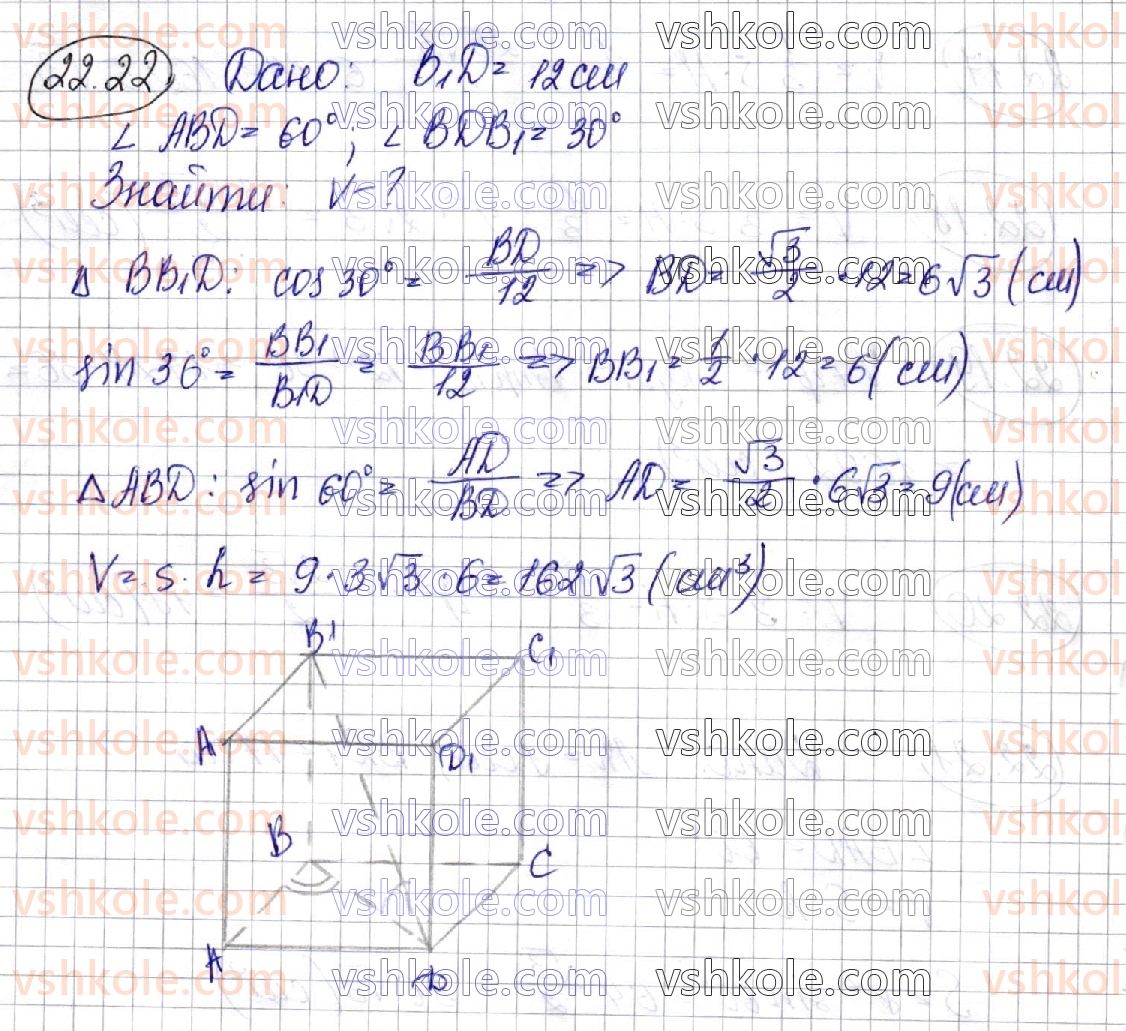 22.22 Дано: B₁D = 12 см
∠ ABD = 60°; ∠ BDB₁ = 30°
Знайти: V - ?
Δ BB₁D: cos 30° = BD/12 => BD = √3/2 · 12 = 6√3 (см)
sin 30° = BB₁/B₁D = BB₁/12 => BB₁ = 1/2 · 12 = 6 (см)
Δ ABD: sin 60° = AD/BD => AD = √3/2 · 6√3 = 9 (см)
V = s · h = 9 · 3√3 · 6 = 162√3 (см³)
B1 C₁
A D₁
B C
A D
vshkole.com